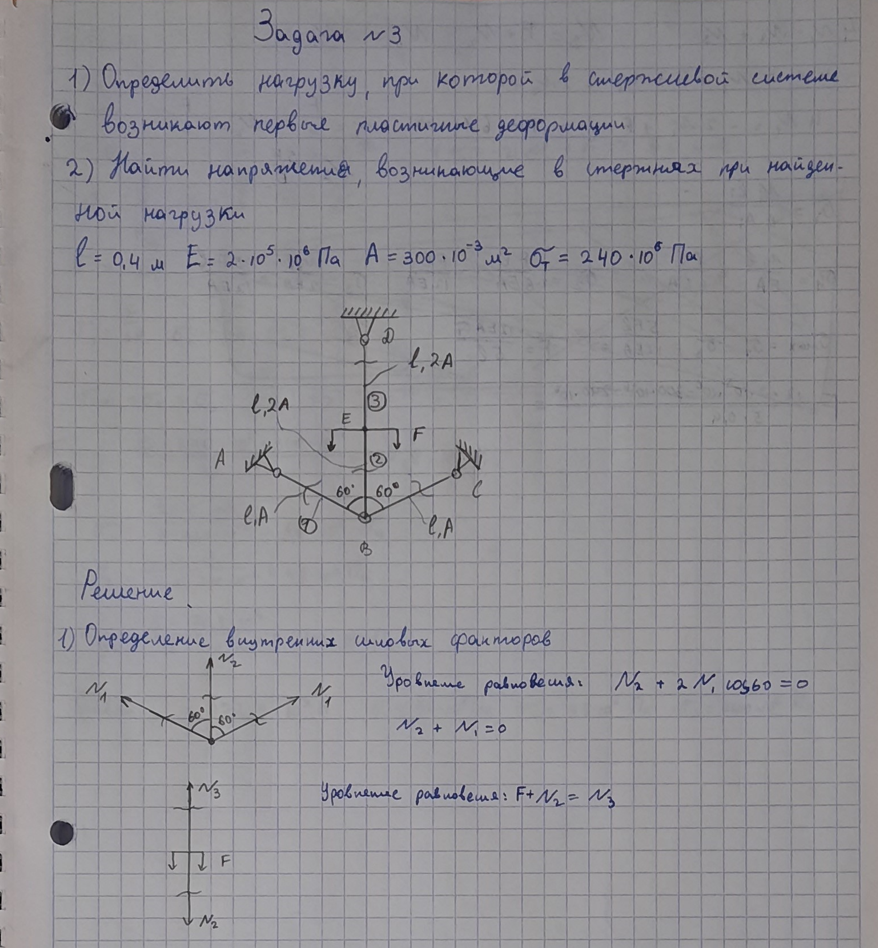 Задача №3
1) Определить нагрузку, при которой в стержневой системе
возникают первые пластичные деформации
2) Найти напряжения, возникающие в стержнях при найден-
ной нагрузки
l = 0,4 м E = 2·10⁵·10⁶ Па A = 300·10⁻³ м² σт = 240·10⁶ Па
D
l, 2A
l, 2A
3
E
F
A
2
C
60°
60°
l, A
1
l, A
B
Решение
1) Определение внутренних силовых факторов
N₂
N₁
N₁
60°
60°
Уровнеие равновесия: N₂ + 2 N₁ cos60 = 0
N₂ + N₁ = 0
N₃
Уровнение равновесия: F + N₂ = N₃
F
N₂